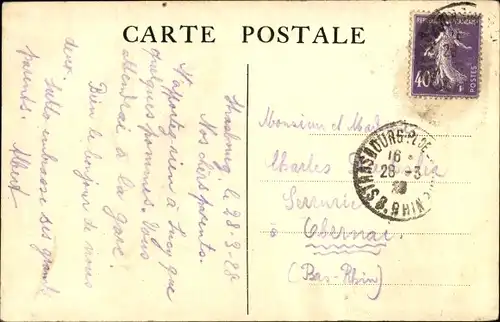 CARTE POSTALE
Strasbourg, le 28-3-28
Nos chers parents.
N'apportez rien à Lucy que
quelques pommes. Vous
attendrai à la gare.
Bien le bonjour de nous
deux.
embrasse ses grands
parents.
Albert
Monsieur et Mad
Charles
Serrurier
Obernai
(Bas-Rhin)
REPUBLIQUE FRANCAISE
40
POSTES
STRASBOURG
16
28-3
28
RHIN